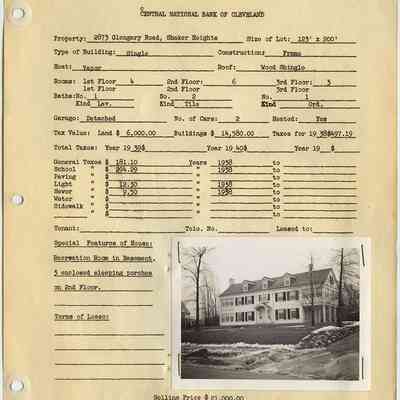 CENTRAL NATIONAL BANK OF CLEVELAND
Property: 2873 Glengary Road, Shaker Heights Size of Lot: 123' x 200'
Type of Building: Single Construction: Frame
Heat: Vapor Roof: Wood Shingle
Rooms: 1st Floor 4 2nd Floor: 6 3rd Floor: 3
1st Floor 2nd Floor 3rd Floor
Baths: No. 1 No. 2 No. 1
Kind Lav. Kind Tile Kind Ord.
Garage: Detached No. of Cars: 2 Heated: Yes
Tax Value: Land $ 6,000.00 Buildings $ 14,580.00 Taxes for 1938 $497.19
Total Taxes: Year 1939$ Year 1940$ Year 19 $
General Taxes $ 181.10 Years 1938 to
School " $ 294.29 " 1938 to
Paving " $ " to
Light " $ 12.30 " 1938 to
Sewer " $ 9.50 " 1938 to
Water " $ " to
Sidewalk " $ " to
" $ " to
Tenant: Tele. No. Leased to:
Special Features of House:
Recreation Room in Basement.
3 enclosed sleeping porches
on 2nd Floor.
Terms of Lease:
Selling Price $